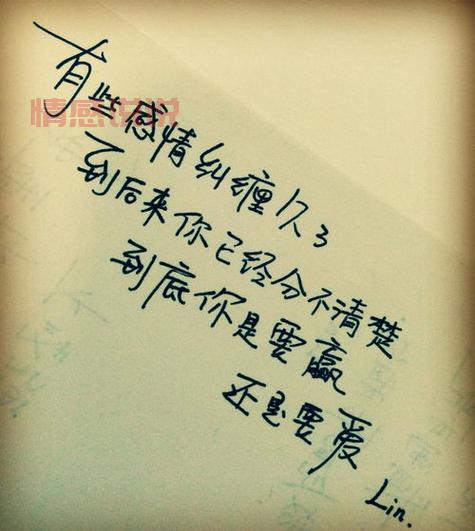 有些感情纠缠久了
到后来你已经分不清楚
到底你是要赢
还是要爱
Lin.
情感说说